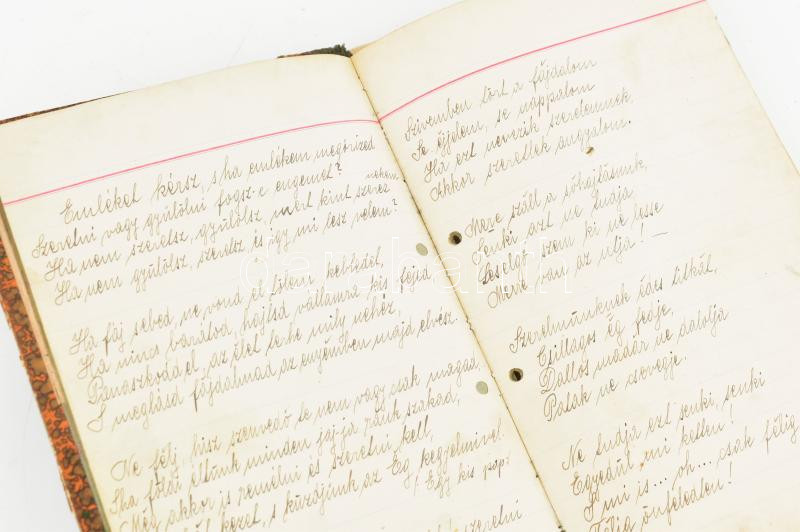 Emléket kérsz, s ha emlékem megőrized
Szeretni vagy gyűlölni fogsz-e engemet?
Ha nem szeretsz, gyűlölsz, mert kínt szerez nekem
Ha nem gyűlölsz, szeretsz és így mi lesz velem?
Ha fáj sebed, ne vond el tőlem kebledet,
Ha nincs barátod, hajtsd vállamra kis fejed
Panaszkodd el, az élet terhe mily nehéz,
S meglásd fájdalmad az enyémben majd elvész.
Ne félj, hisz szenvedő te nem vagy csak magad,
S ha földi éltünk minden jaj-ja ránk szakad,
Még akkor is remélni és szeretni kell,
kezet, s küzdjünk az Ég kegyelmivel.
(Egy kis pap)
szeretni
Szivemben tört a fájdalom
Se éjjelem, se nappalom
Ha ezt nevezik szerelemnek,
Akkor szeretlek angyalom.
Mere száll a sóhajtásunk,
Senki azt ne tudja
Leselgő szem ki ne lesse
Mere van az utja! —
Szerelmünknek édes titkát,
Csillagos ég fedje,
Dallos madár ne dalolja
Patak ne csevegje.
Ne tudja ezt senki, senki
Egyedül mi ketten!
S mi is ... oh ... csak félig
Félig önfeledten!
darabanth